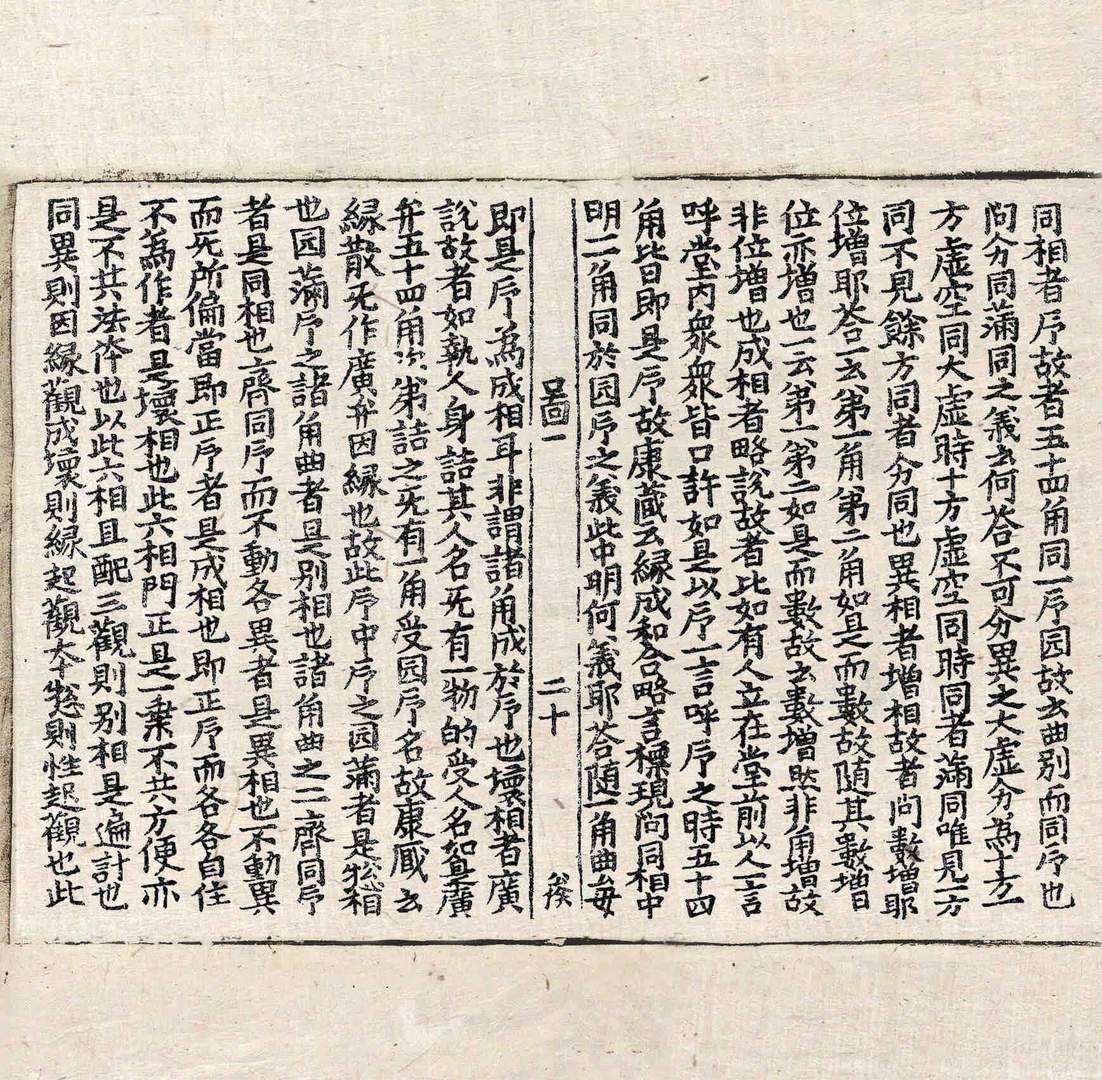 同相者序故者五十四角同一序园故云曲別而同序也
问分同滿同之義云何荅不可分異之大虛分為十方一
方虛空同大虛時十方虛空同時同者滿同唯見一方
同不見餘方同者分同也異相者增相故者问數增耶
位增耶荅一云第一角第二角如是而數故随其數增
位亦增也一云第一第二如是而數故云數增然非角增故
非位增也成相者略說故者比如有人立在堂前以人一言
呼堂内衆衆皆口許如是以序一言呼序之時五十四
角皆即是序故康藏云緣成和合略言標現问同相中
明一一角同於园序之義此中明何義耶荅随一角曲每
圖一 二十 
即是序為成相耳非謂諸角成於序也壞相者廣
說故者如執人身詰其人名旡有一物的受人名如是廣
弁五十四角次第詰之旡有一角受园序名故康藏云
緣散旡作廣弁因緣也故此序中序之园滿者是㧾相
也园滿序之諸角曲者是別相也諸角曲之一一齊同序
者是同相也一齊同序而不動各異者是異相也不動異
而旡所偏當即正序者是成相也即正序而各各自住
不為作者是壞相也此六相門正是一乗不共方便亦
是不共法体也以此六相且配三觀則別相是遍計也
同異則因緣觀成壞則緣起觀本㧾則性起觀也此